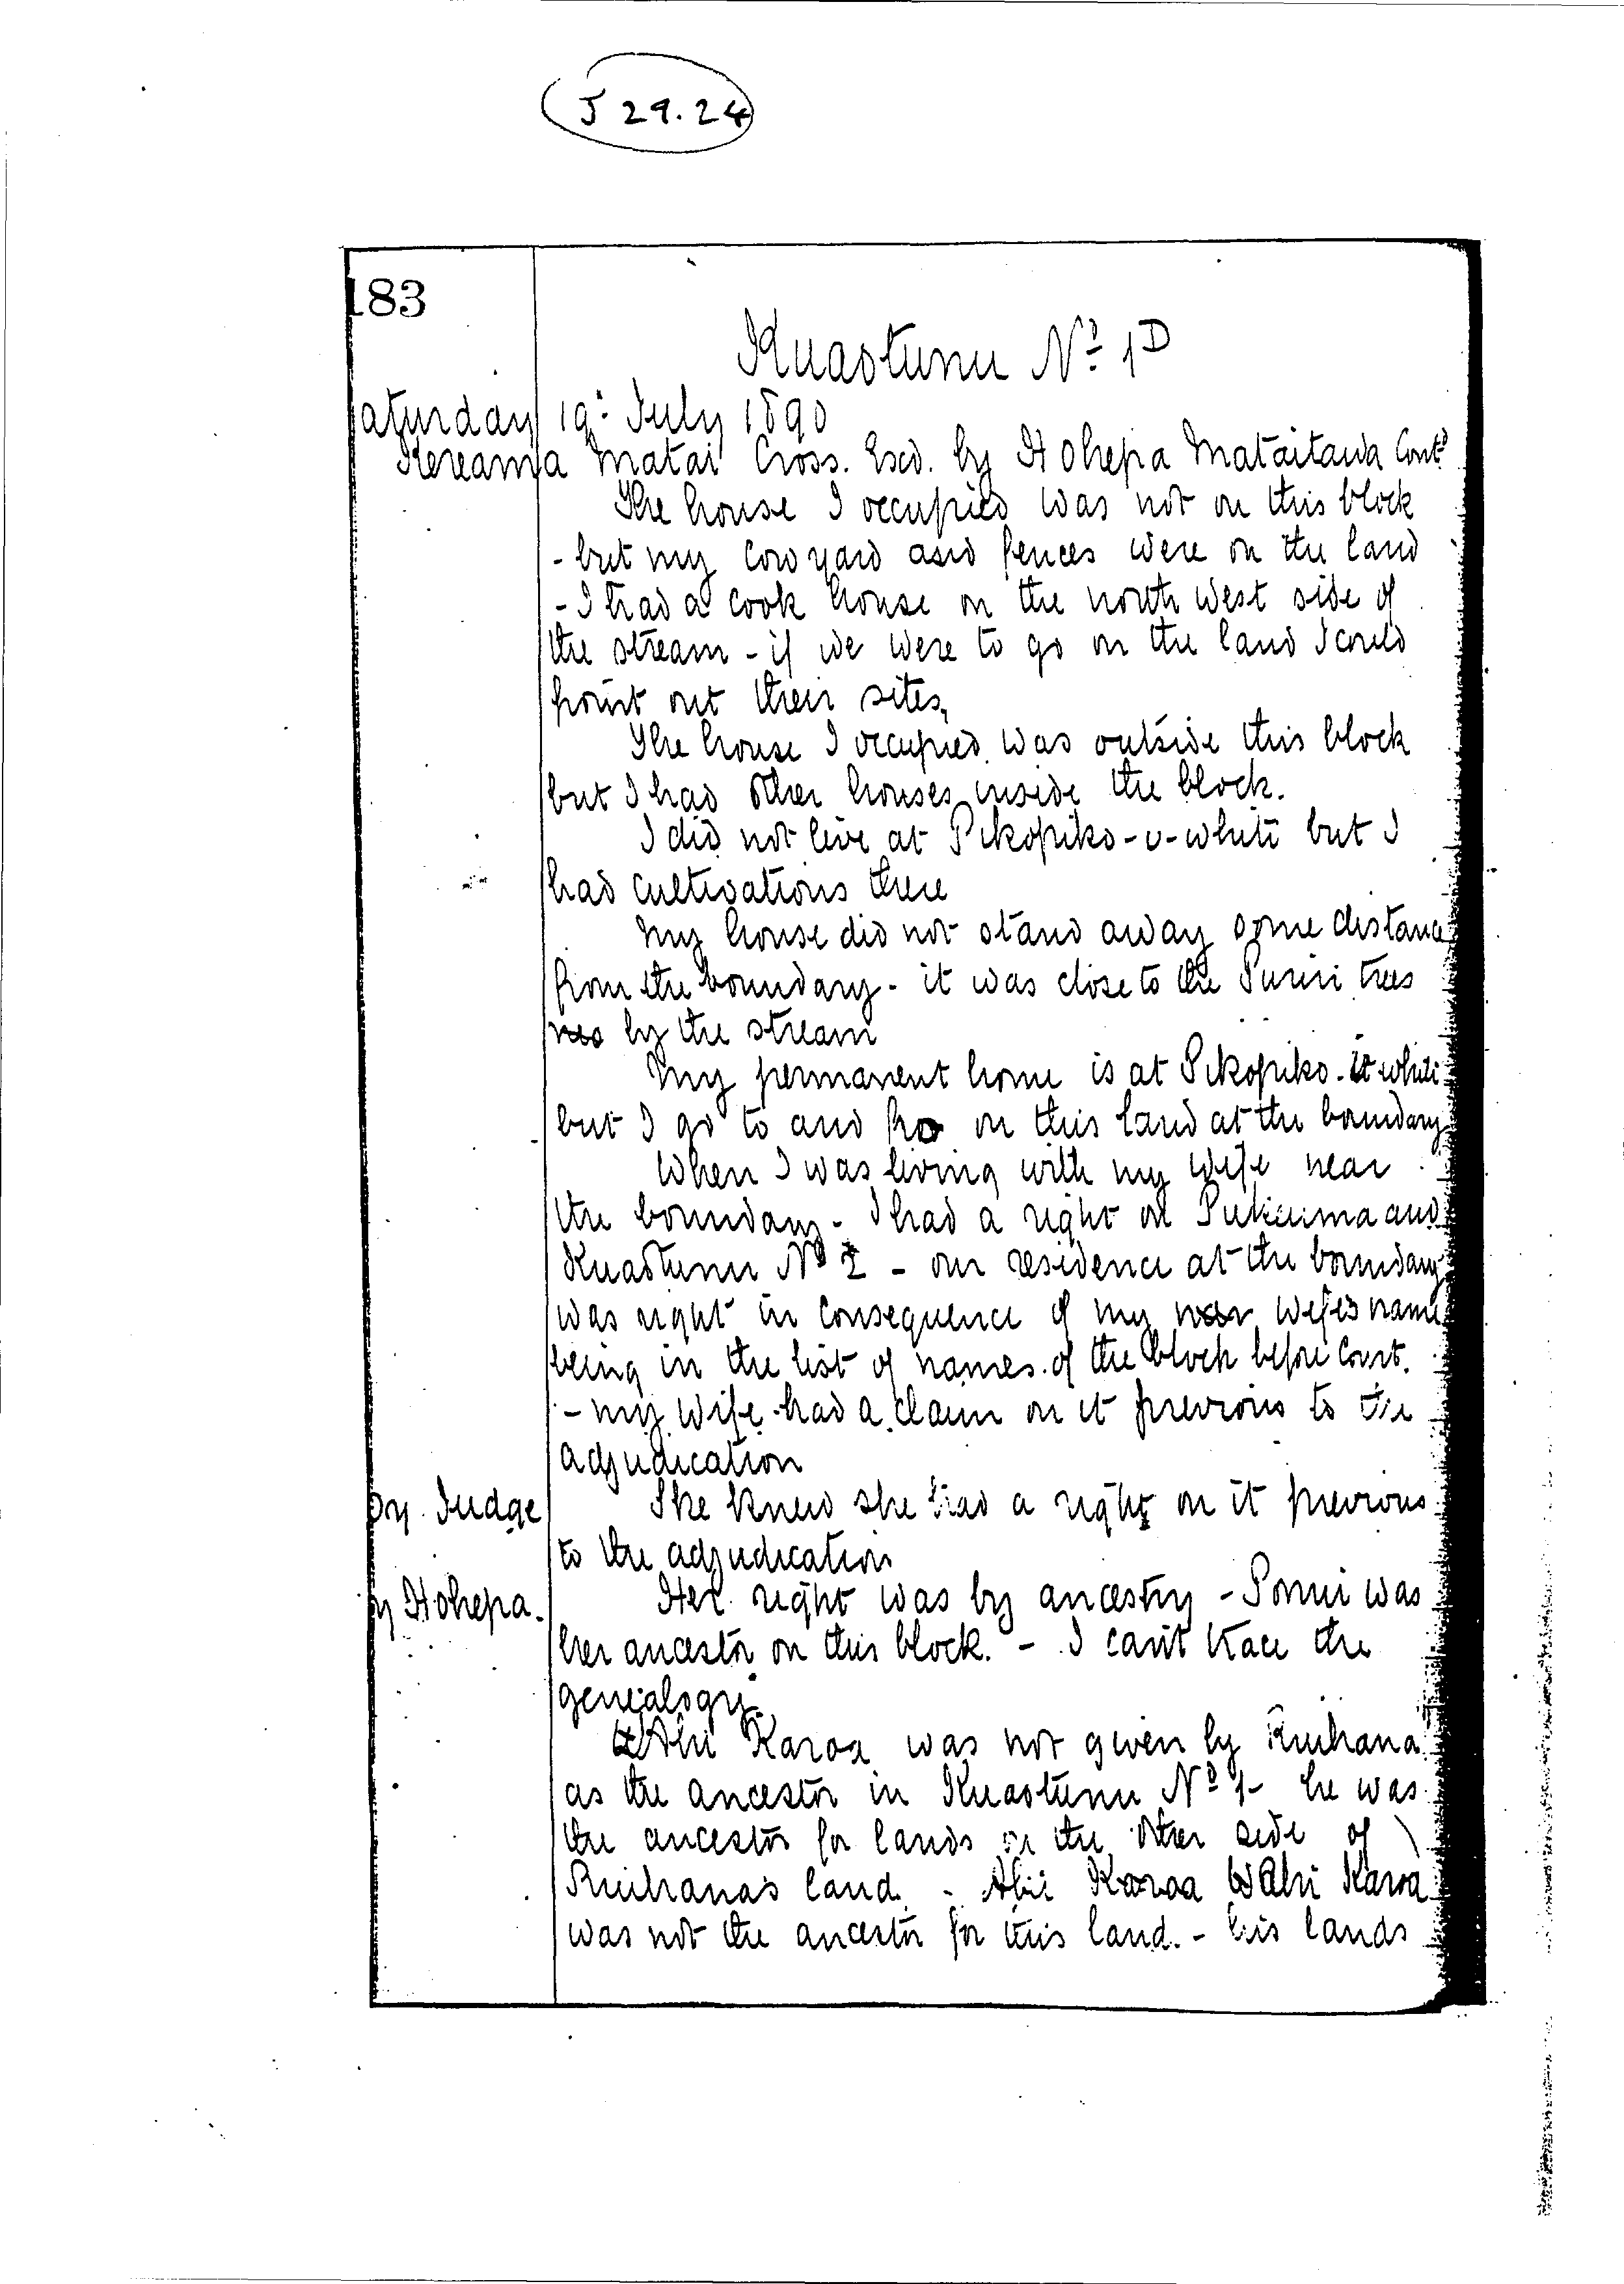 J 29.24
183
Kuaotunu No 1D
Saturday 19: July 1890
Hereama Matai Cross. Exd. by Hohepa Mataitaua Contd
The house I occupied was not on this block
- but my cow yard and fences were on the land
- I had a cook house on the north west side of
the stream - if we were to go on the land I could
point out their sites,
The house I occupied was outside this block
but I had other houses inside the block.
I did not live at Pikopiko-u-whiti but I
had cultivations there
My house did not stand away some distance
from the boundary - it was close to the Puriri trees
by the stream
My permanent home is at Pikopiko-u-whiti
but I go to and fro on this land at the boundary
When I was living with my wife near
the boundary - I had a right on and
Kuaotunu No 2 - our residence at the boundary
was right in consequence of my wifes name
being in the list of names of the block before Court.
- my wife had a claim on it previous to the
adjudication
By Judge She knew she had a right on it previous
to the adjudication
By Hohepa. Her right was by ancestry - was
her ancestor on this block. - I can't trace the
genealogy.
Ahi Karoa was not given by Ruihana
as the ancestor in Kuaotunu No 1 - he was
the ancestor for lands on the other side of
Ruihana's land - Ahi Karoa
was not the ancestor for this land. - his lands